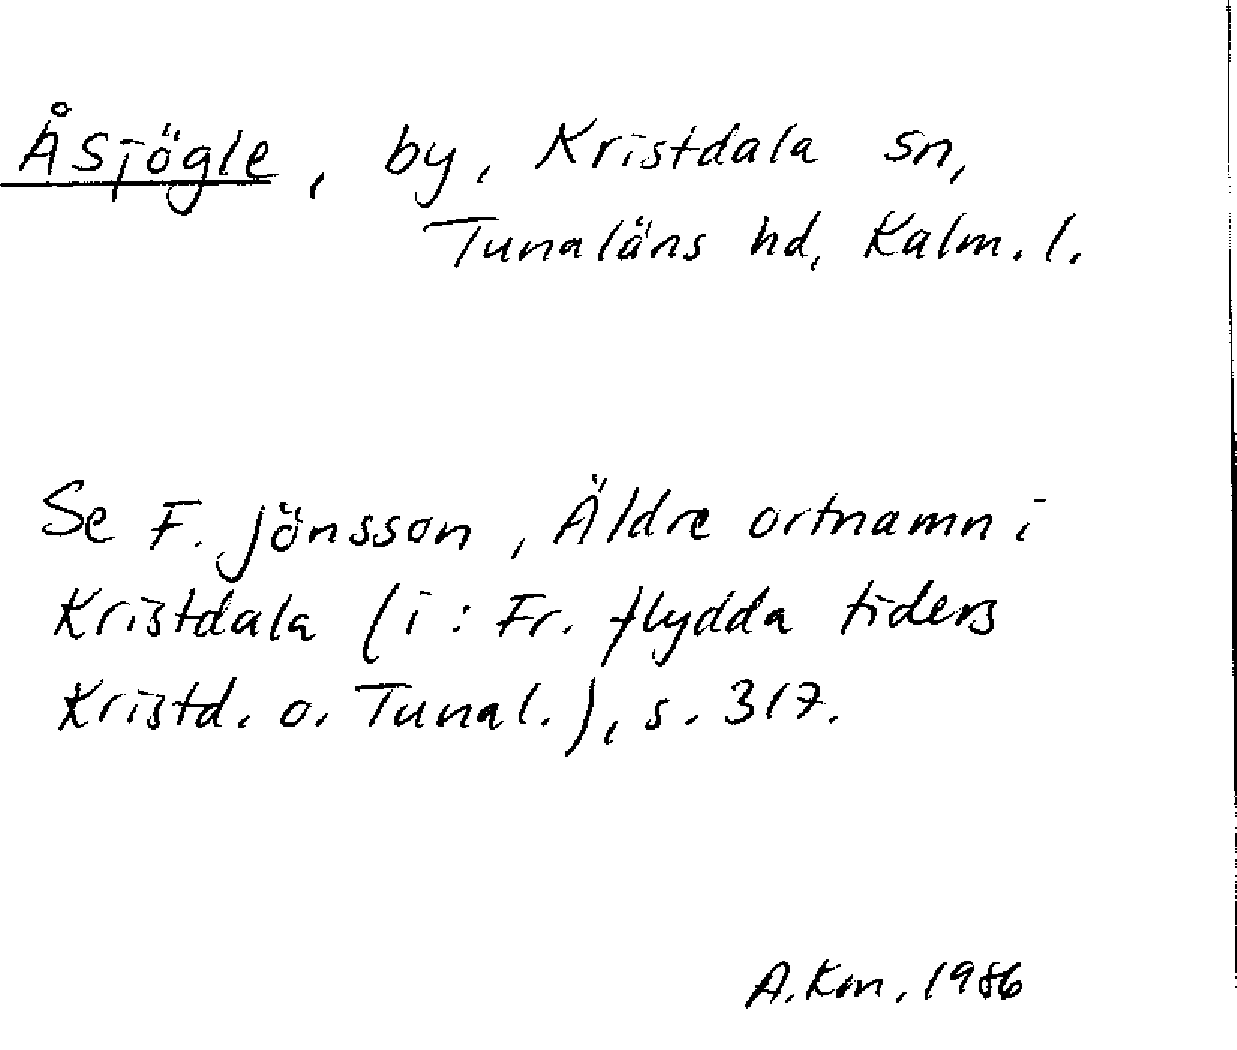 Åsjögle, by, Kristdala sn,
Tunaläns hd, Kalm. l.
Se F. Jönsson, Äldre ortnamn i
Kristdala (i: Fr. flydda tiders
Kristd. o. Tunal.), s. 317.
A. Km. 1986